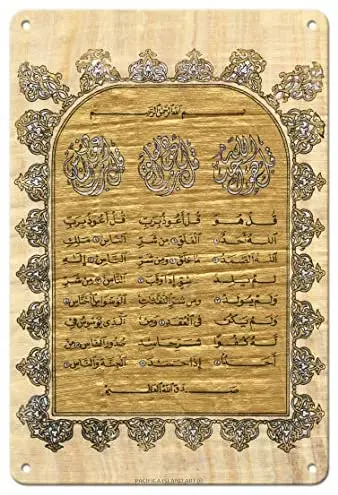 بسم الله الرحمن الرحيم
قل هو الله أحد
قل أعوذ برب الفلق
قل أعوذ برب الناس
قل هو
الله أحد
الله الصمد
لم يلد
ولم يولد
ولم يكن
له كفوا
أحد
قل أعوذ برب
الفلق من شر
ما خلق ومن
شر إذا وقب
ومن شر النفاثات
في العقد ومن
شر حاسد
إذا حسد
قل أعوذ برب
الناس ملك
الناس إله
الناس من شر
الوسواس الخناس
الذي يوسوس في
صدور الناس من
الجنة والناس
صدق الله العظيم
PACIFICA ISLAND ART